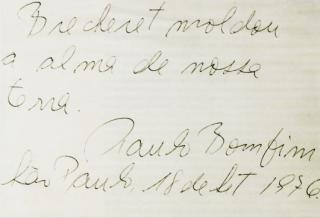 Brecheret moldou
a alma de nossa
terra.
Paulo Bomfim
São Paulo, 18 de Set 1976